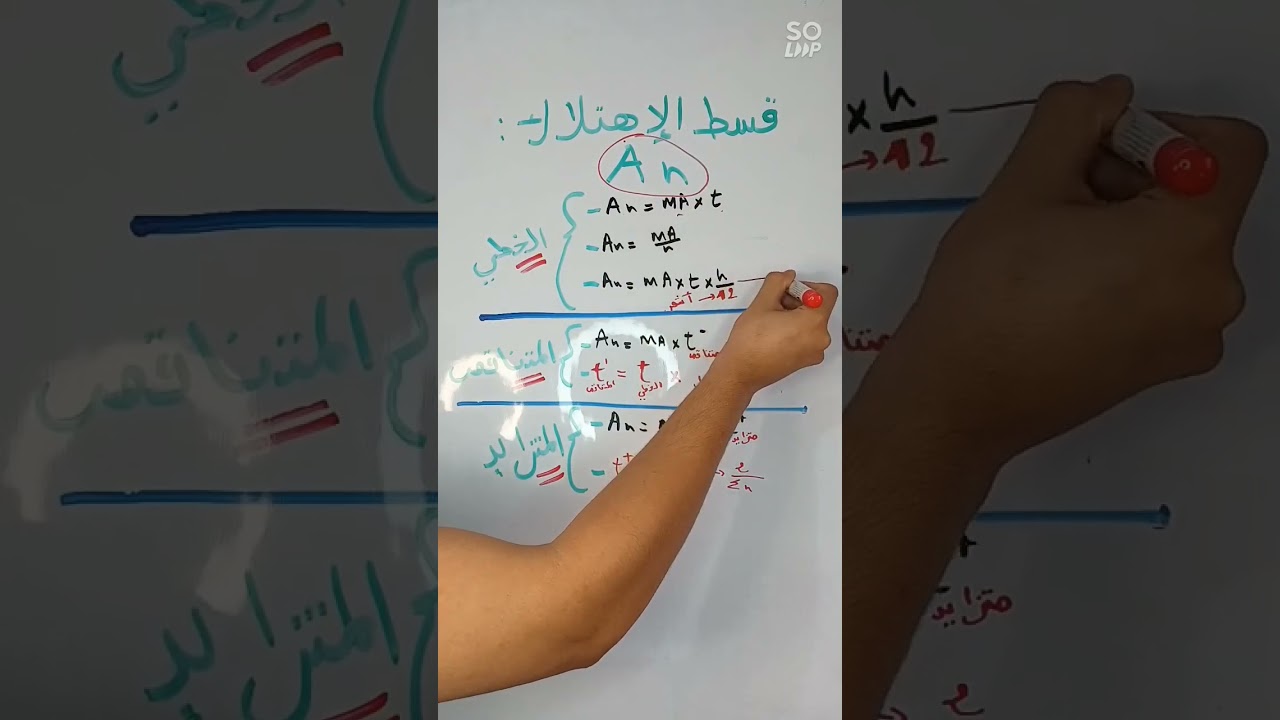 SO
LOOP
قسط الإهتلاك :
An
الخطي
- An = MA x t
- An = MA/n
- An = MA x t x n/12
أشهر ←
المتناقص
- An = MA x t-
متناقص
- t' = t x
المتناقص الخطي
المتزايد
- An =
متزايد
- t+
→ 2/Σn